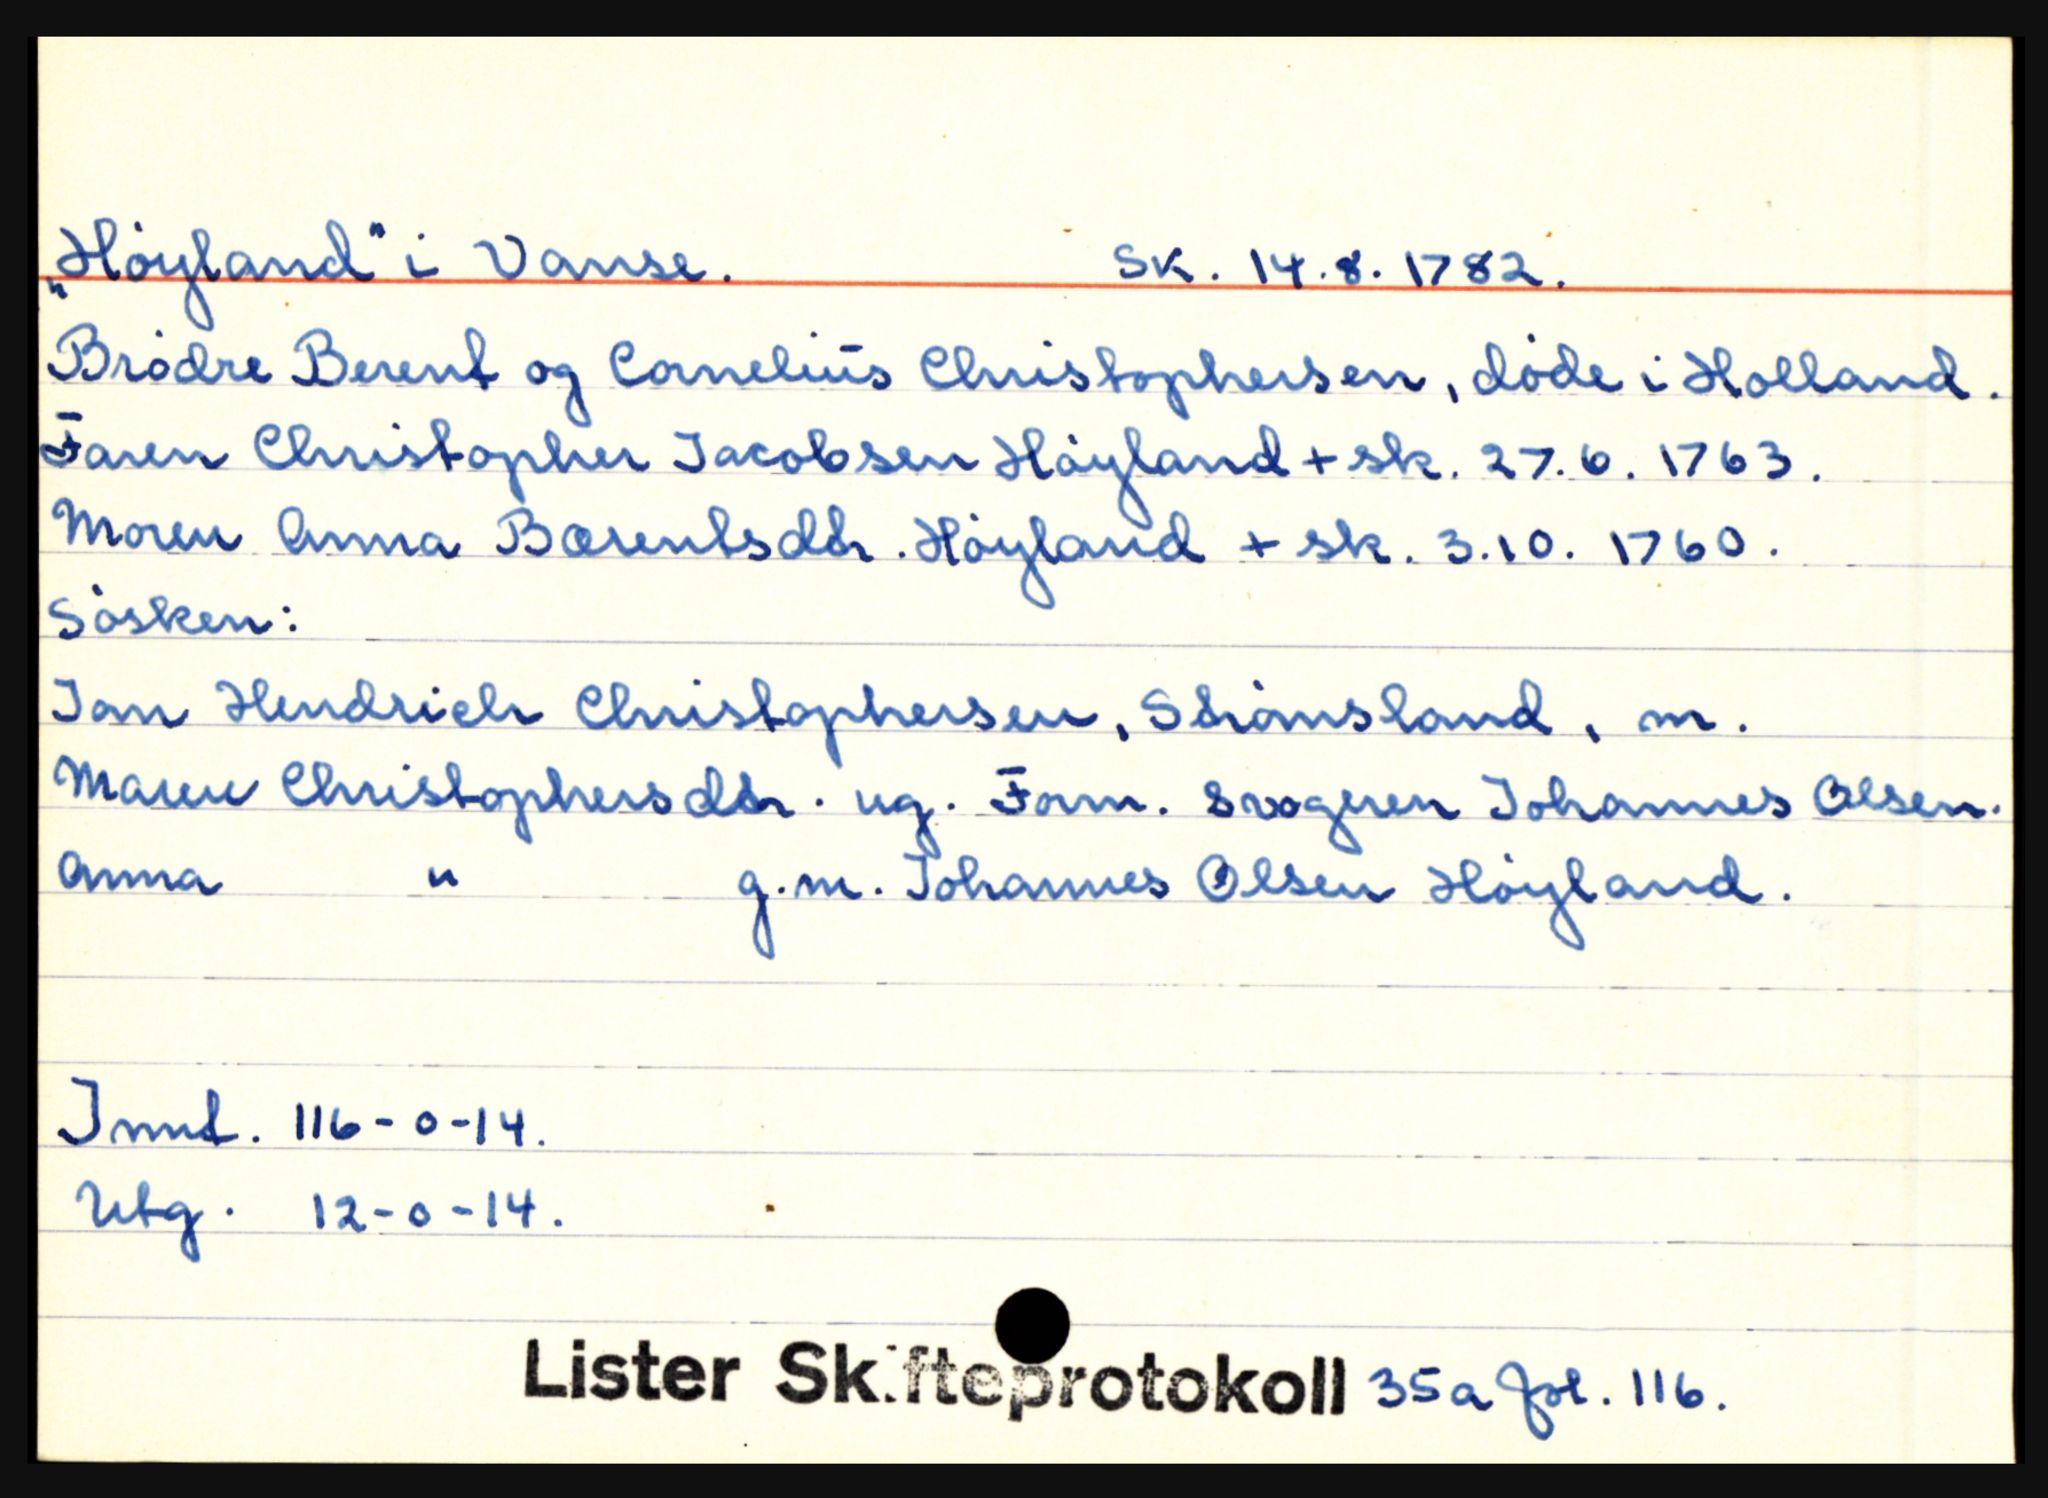 „Höyland" i Vanse. Sk. 14.8. 1782.
Brödre Berent og Cornelius Christophersen, döde i Holland.
Faren Christopher Jacobsen Höyland + sk. 27.6. 1763.
Moren Anna Bærentsdtr. Höyland + sk. 3.10. 1760.
Sösken:
Jan Hendrich Christophersen, Strömsland, m.
Maren Christophersdtr. ug. Form. svogeren Johannes Olsen.
Anna " g.m. Johannes Olsen Höyland.
Innt. 116-0-14.
Utg. 12-0-14.
Lister Skifteprotokoll 35a fol. 116.